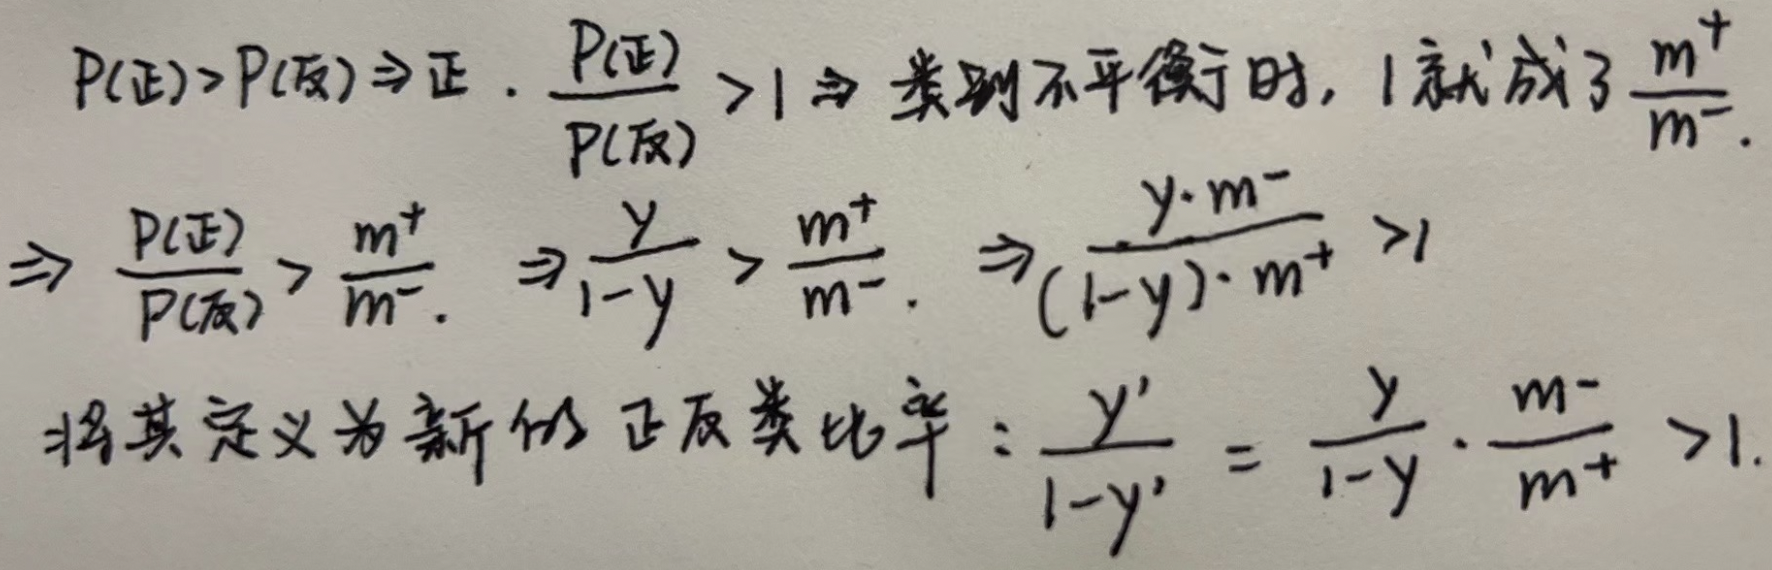 P(正)>P(反)⇒正. \frac{P(正)}{P(反)}>1⇒类别不平衡时, 1就成了\frac{m^+}{m^-}.
⇒\frac{P(正)}{P(反)}>\frac{m^+}{m^-}. ⇒\frac{y}{1-y}>\frac{m^+}{m^-}. ⇒\frac{y·m^-}{(1-y)·m^+}>1
将其定义为新的正反类比率:\frac{y'}{1-y'}=\frac{y}{1-y}·\frac{m^-}{m^+}>1.